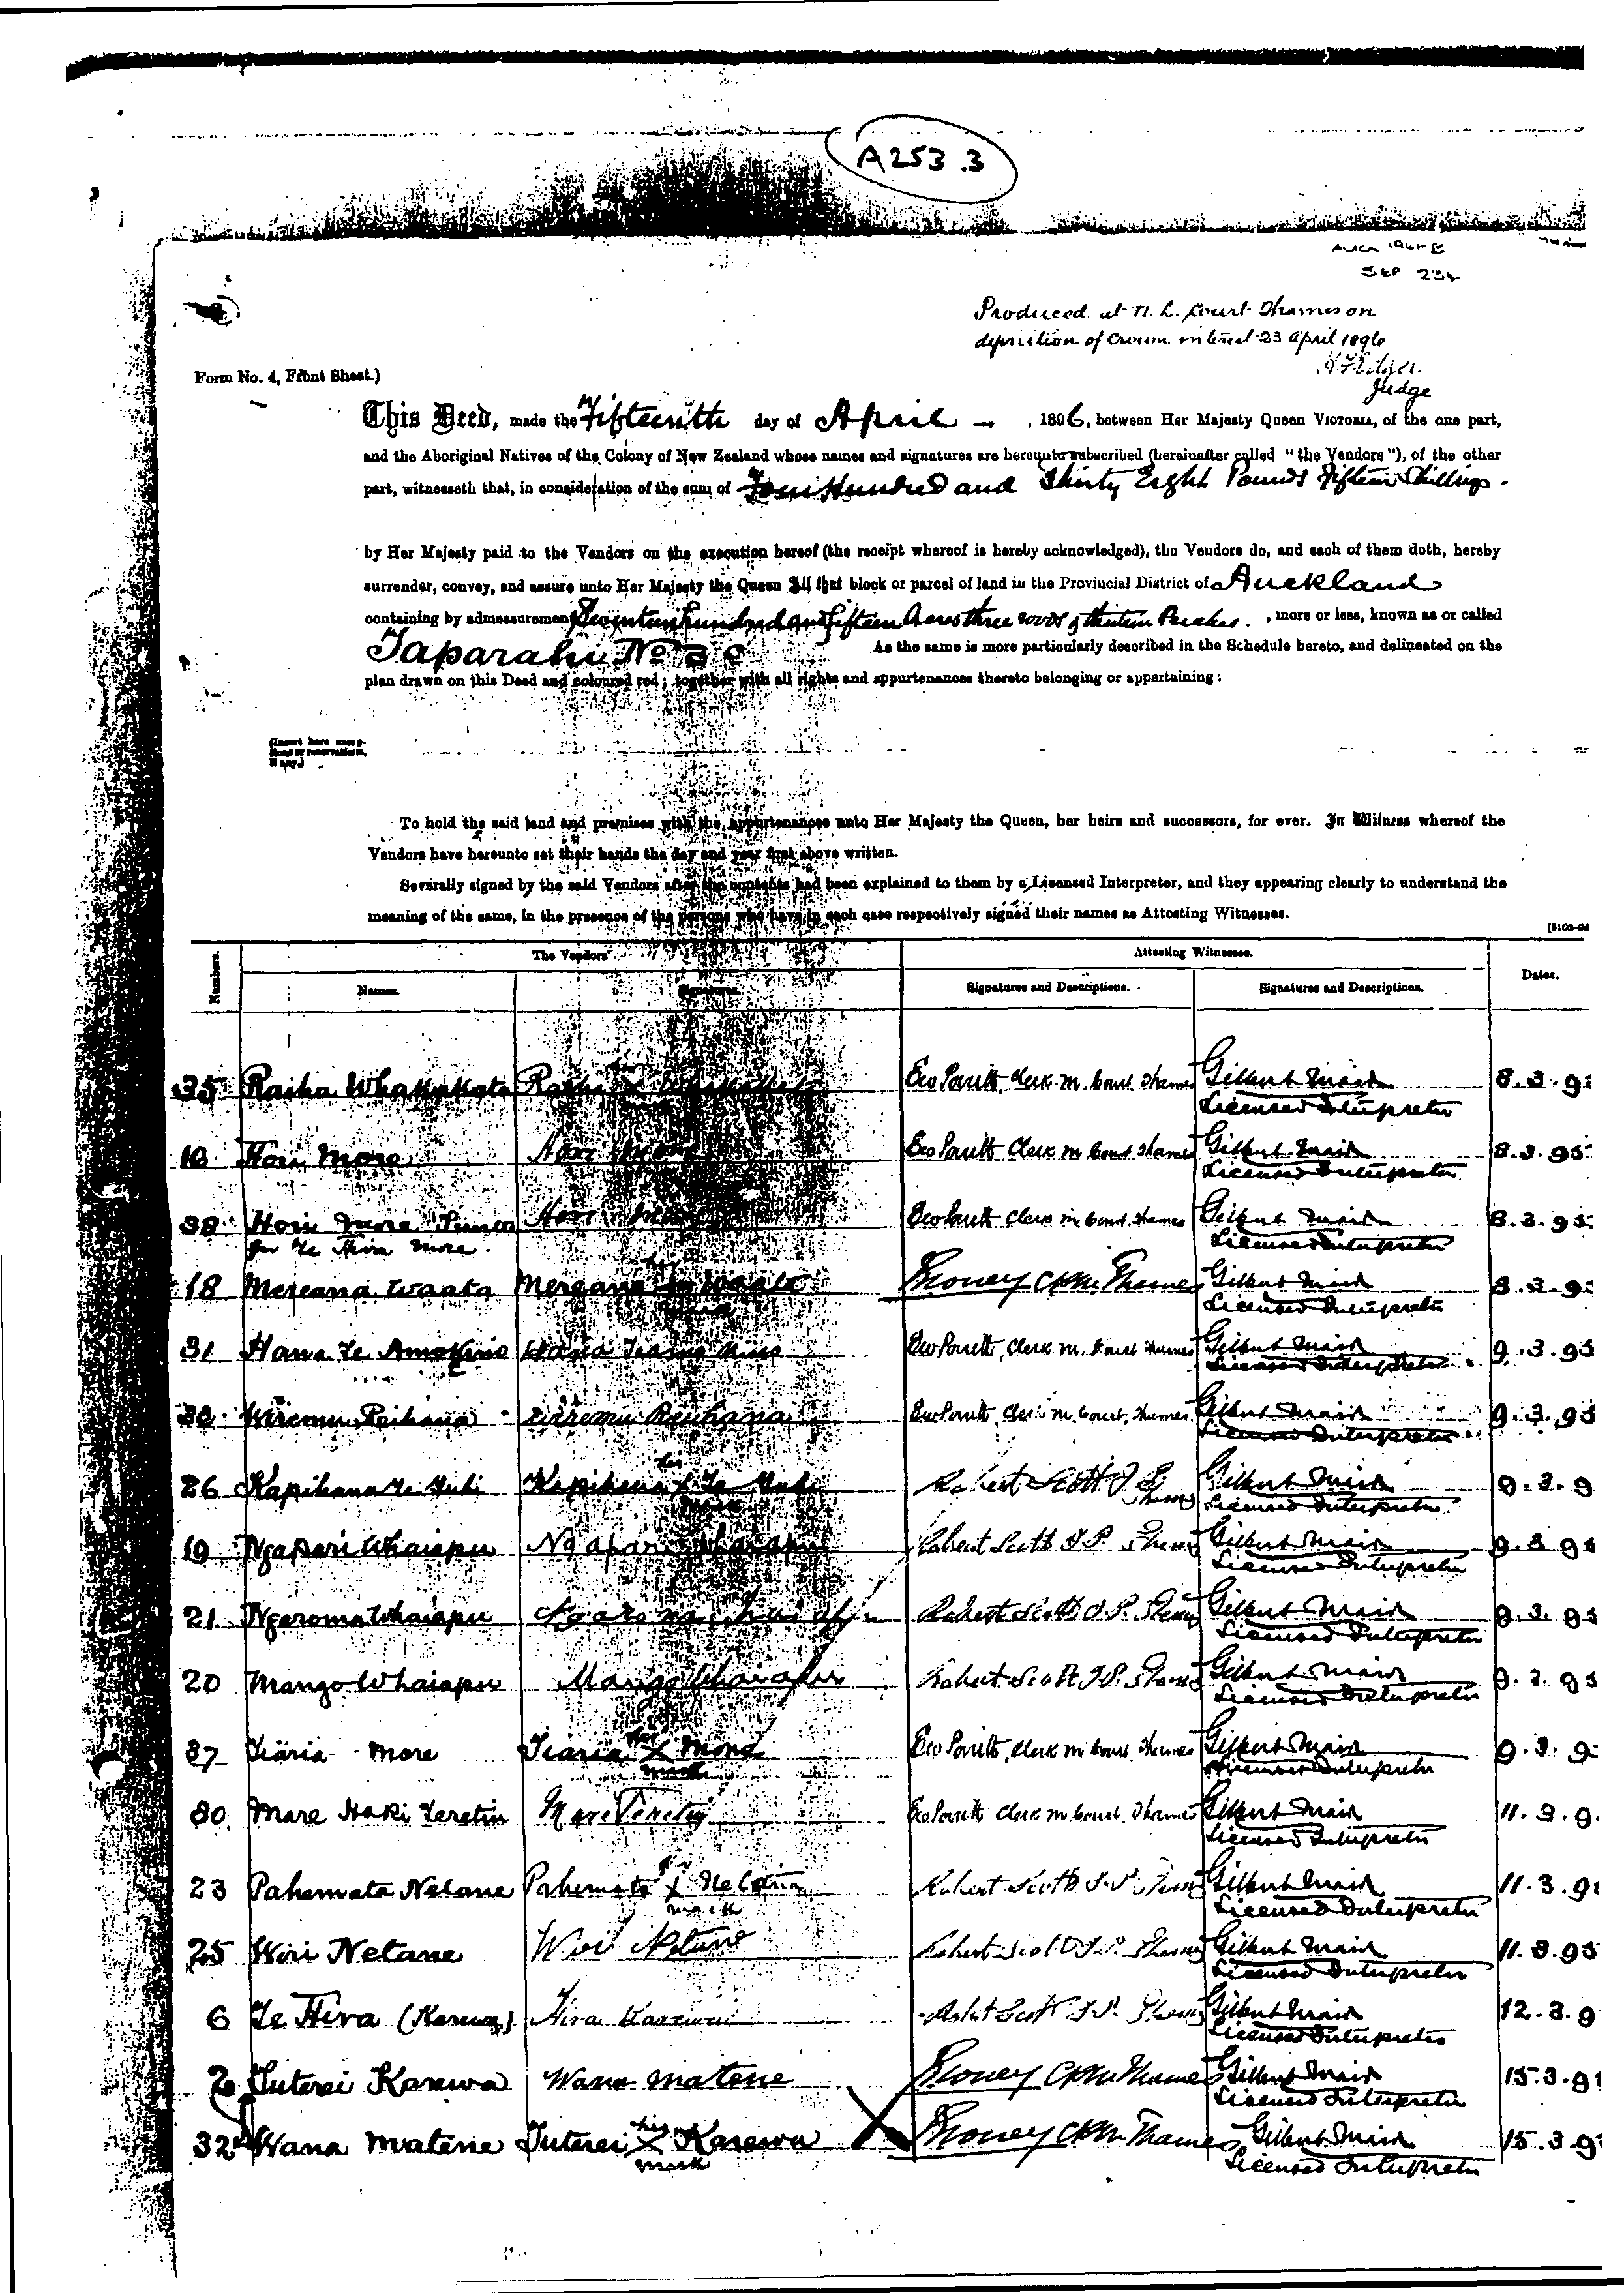 A253.3
SEP 234
Produced at N. L. Court Thames on
deposition of Crown interest 23 April 1896
Judge
Form No. 4, Front Sheet.)
This Deed, made the Fifteenth day of April , 1896, between Her Majesty Queen VICTORIA, of the one part,
and the Aboriginal Natives of the Colony of New Zealand whose names and signatures are hereunto subscribed (hereinafter called "the Vendors"), of the other
part, witnesseth that, in consideration of the sum of Four Hundred and Thirty Eight Pounds Fifteen Shillings.
by Her Majesty paid to the Vendors on the execution hereof (the receipt whereof is hereby acknowledged), the Vendors do, and each of them doth, hereby
surrender, convey, and assure unto Her Majesty the Queen All that block or parcel of land in the Provincial District of Auckland
containing by admeasurement Seventeen hundred and fifteen Acres three roods & thirteen Perches. , more or less, known as or called
Taparahi No 3 C As the same is more particularly described in the Schedule hereto, and delineated on the
plan drawn on this Deed and coloured red; together with all rights and appurtenances thereto belonging or appertaining:
(Insert here exceptions or reservations, if any.)
To hold the said land and premises with the appurtenances unto Her Majesty the Queen, her heirs and successors, for ever. In Witness whereof the
Vendors have hereunto set their hands the day and year first above written.
Severally signed by the said Vendors after the contents had been explained to them by a Licensed Interpreter, and they appearing clearly to understand the
meaning of the same, in the presence of the persons who have in each case respectively signed their names as Attesting Witnesses.
Numbers. The Vendors Attesting Witnesses. Dates.
Names. Signatures. Signatures and Descriptions. Signatures and Descriptions.
35 Raiha Whakakata Raiha X Whakakata Geo Porritt, Clerk M. Court Thames Gilbert Mair Licensed Interpreter 8.3.9
10 Hori More Hori More Geo Porritt Clerk M. Court Thames Gilbert Mair Licensed Interpreter 8.3.95
38 Hori More for Te Hira More Hori More Geo Porritt Clerk M. Court, Thames Gilbert Mair Licensed Interpreter 8.3.95
18 Mereana Waata Mereana her X mark Waata CPM Thames Gilbert Mair Licensed Interpreter 8.3.9
31 Hana Te Amokino Hana Teamo Kino Geo Porritt, Clerk M. Court Thames Gilbert Mair Licensed Interpreter 9.3.95
33 Wiremu Reihana Wiremu Reihana Geo Porritt, Clerk M. Court, Thames Gilbert Mair Licensed Interpreter 9.3.95
26 Kapihana Te Tuhi Kapihana her X mark Te Tuhi Robert Scott J.P. Thames Gilbert Mair Licensed Interpreter 9.3.9
19 Ngapari Whaiapu Ngapari Whaiapu Robert Scott J.P. Thames Gilbert Mair Licensed Interpreter 9.3.95
21 Ngaroma Whaiapu Ngaroma Whaiapu Robert Scott J.P. Thames Gilbert Mair Licensed Interpreter 9.3.95
20 Mango Whaiapu Mango Whaiapu Robert Scott J.P. Thames Gilbert Mair Licensed Interpreter 9.3.95
37 Tiaria More Tiaria her X mark More Geo Porritt, Clerk M. Court, Thames Gilbert Mair Licensed Interpreter 9.3.9
30 Mare Haki Teretiu Mare Teretiu Geo Porritt Clerk M. Court, Thames Gilbert Mair Licensed Interpreter 11.3.9
23 Pahemata Netana Pahemata her X mark Netana Robert Scott J.P. Thames Gilbert Mair Licensed Interpreter 11.3.9
25 Wiri Netane Wiri Netane Robert Scott J.P. Thames Gilbert Mair Licensed Interpreter 11.3.95
6 Te Hira (Karewa) Hira Karewa Robert Scott J.P. Thames Gilbert Mair Licensed Interpreter 12.3.9
2 Tuterei Karewa Wana Matene CPM Thames Gilbert Mair Licensed Interpreter 15.3.9
32 Wana Matene Tuterei his X mark Karewa CPM Thames Gilbert Mair Licensed Interpreter 15.3.9